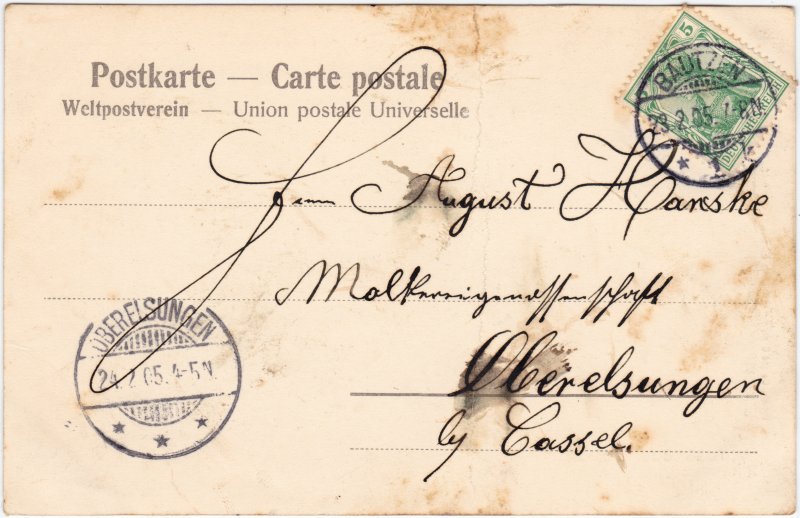 Postkarte — Carte postale
Weltpostverein — Union postale Universelle
5
BAUTZEN
23.2.05. 7-8N.
* 1 k
DEUTSCHES REICH
Herrn August Hanske
Molkereigenossenschaft
Oberelsungen
by Cassel.
OBERELSUNGEN
24.2.05. 4-5N.
* * *